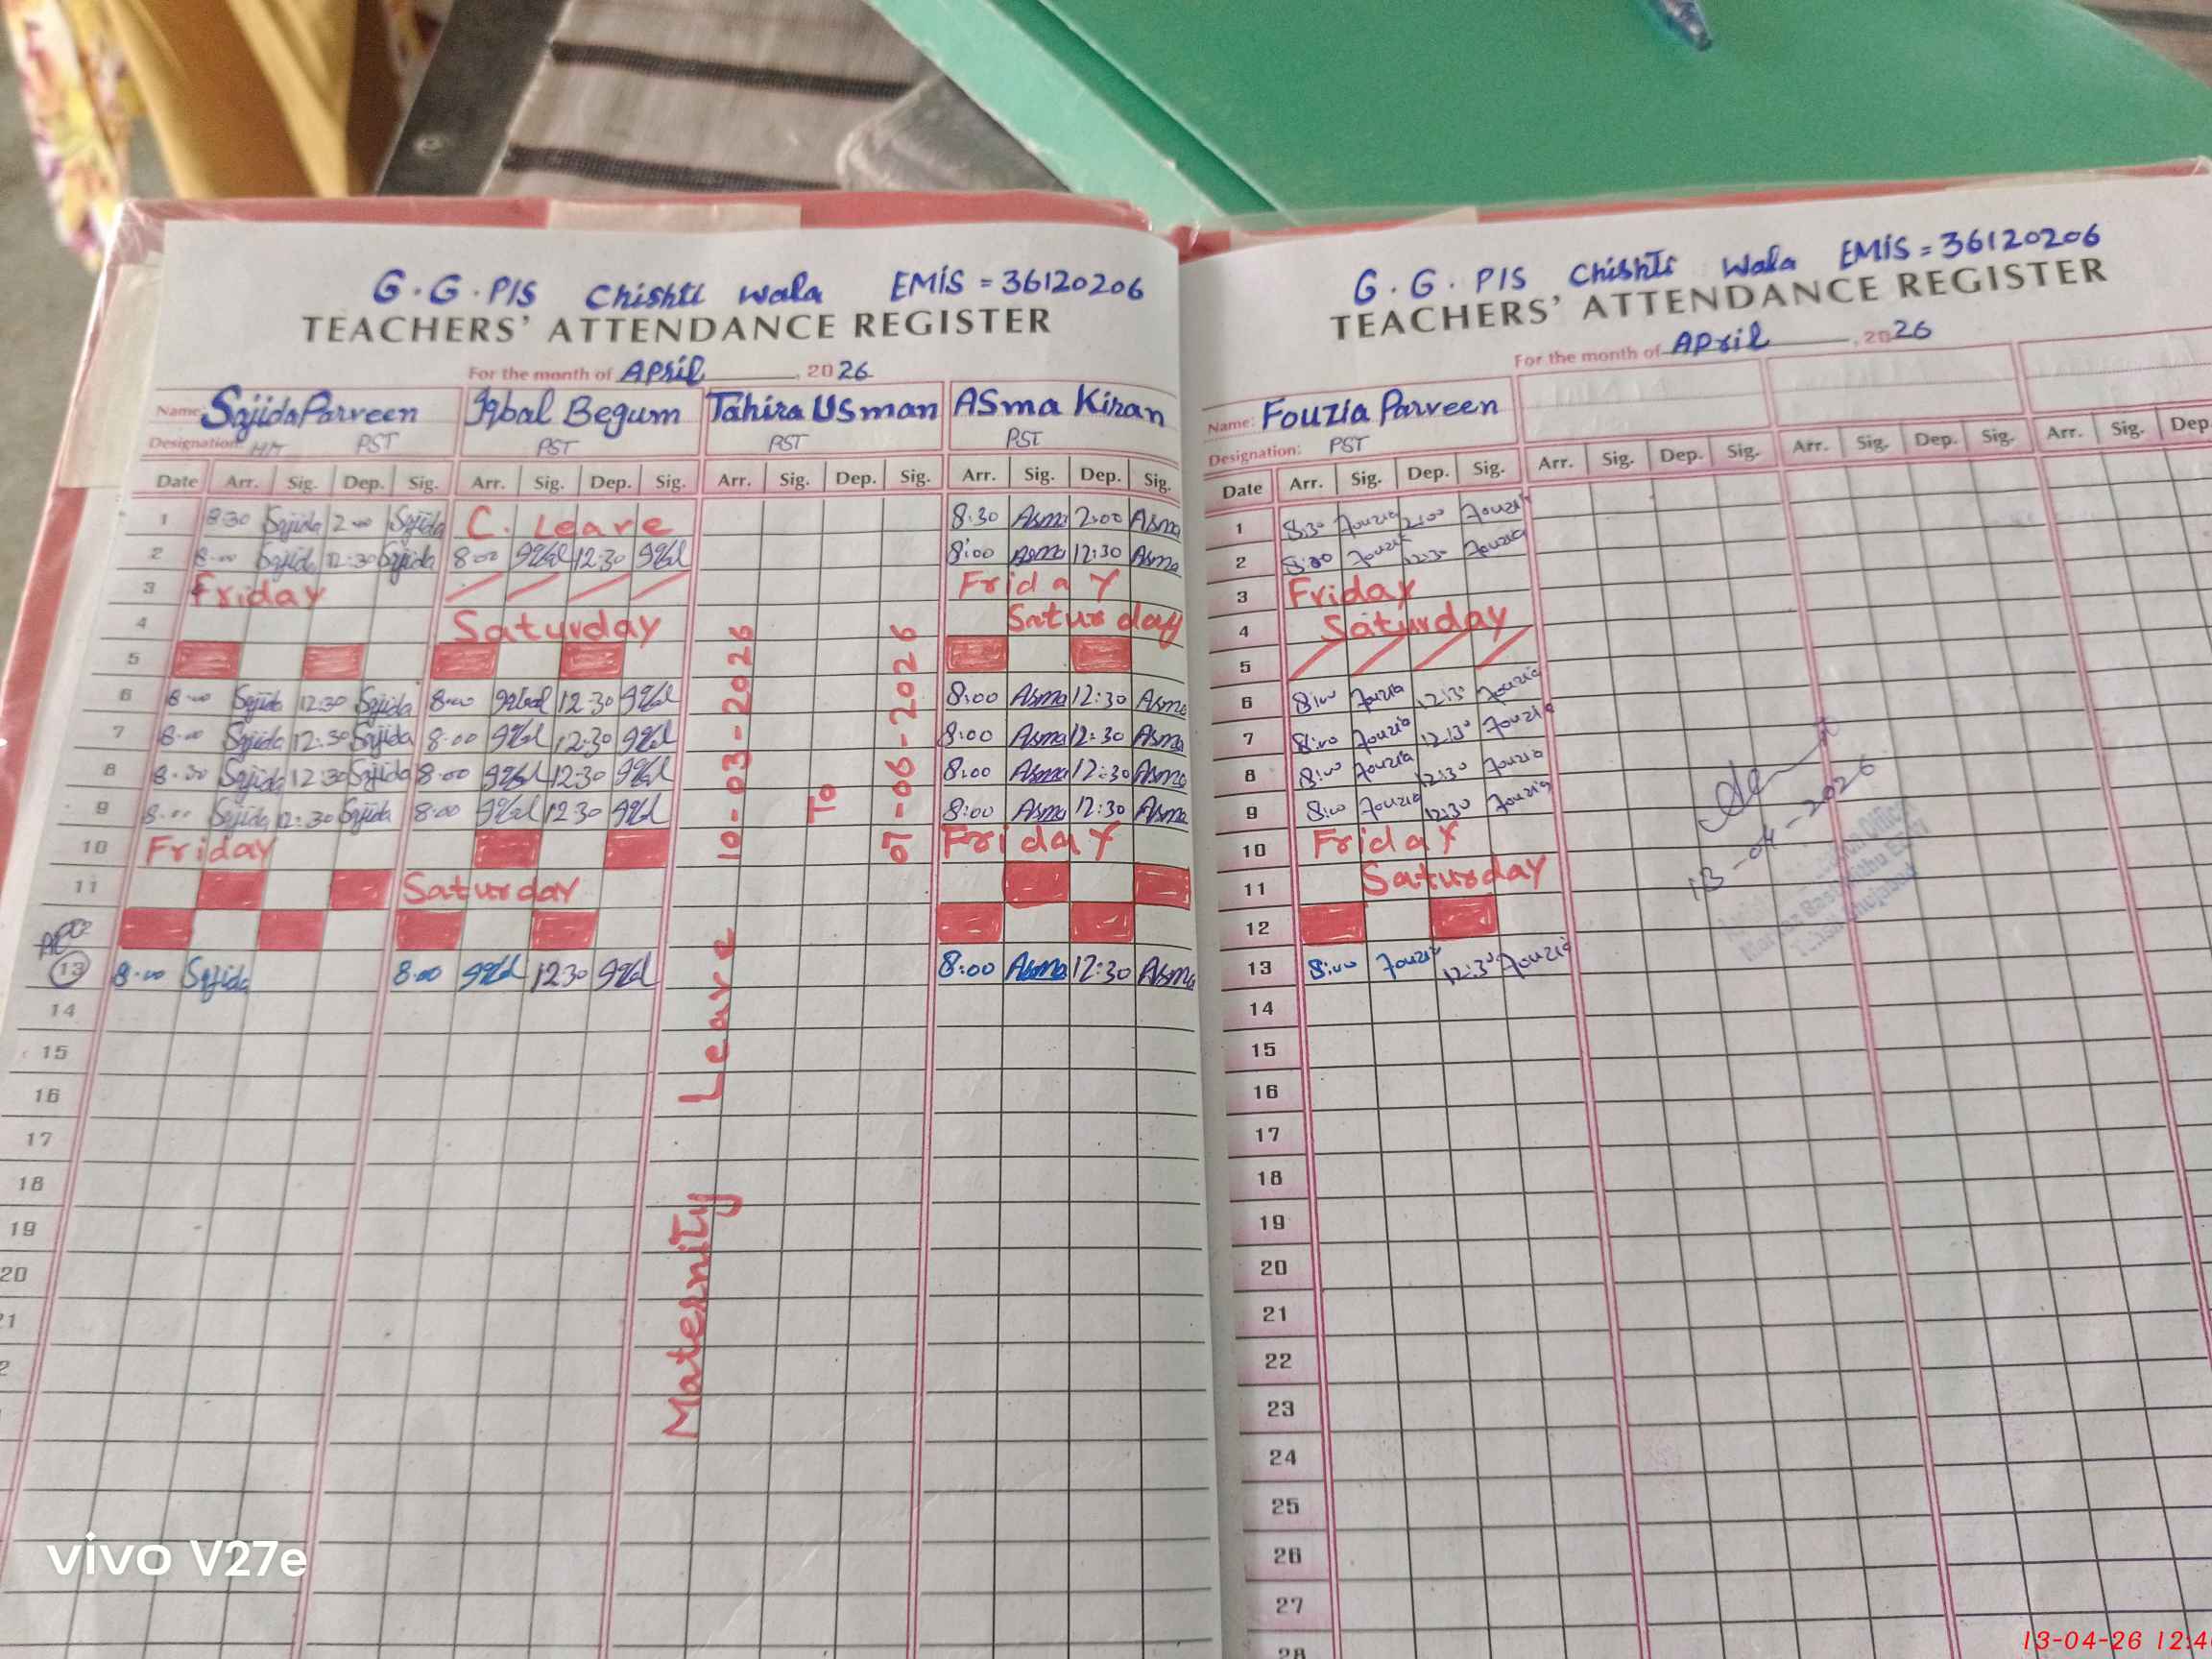 G.G.P/S Chishti Wala EMIS = 36120206
TEACHERS' ATTENDANCE REGISTER
For the month of April, 2026
Name: Sajida Parveen Iqbal Begum Tahira Usman Asma Kiran
Designation: HM PST PST PST PST
Date Arr. Sig. Dep. Sig. Arr. Sig. Dep. Sig. Arr. Sig. Dep. Sig. Arr. Sig. Dep. Sig.
1 8:30 Sajida 2:00 Sajida C. Leave 8:30 Asma 2:00 Asma
2 8:00 Sajida 12:30 Sajida 8:00 Iqbal 12:30 Iqbal 8:00 Asma 12:30 Asma
3 Friday Friday
4 Saturday Saturday
5
6 8:00 Sajida 12:30 Sajida 8:00 Iqbal 12:30 Iqbal 8:00 Asma 12:30 Asma
7 8:00 Sajida 12:30 Sajida 8:00 Iqbal 12:30 Iqbal 8:00 Asma 12:30 Asma
8 8:30 Sajida 12:30 Sajida 8:00 Iqbal 12:30 Iqbal 8:00 Asma 12:30 Asma
9 8:00 Sajida 12:30 Sajida 8:00 Iqbal 12:30 Iqbal 8:00 Asma 12:30 Asma
10 Friday Friday
11 Saturday
13 8:00 Sajida 8:00 Iqbal 12:30 Iqbal 8:00 Asma 12:30 Asma
14
15
16
17
18
19
20
Maternity Leave 10-03-2026
To
07-06-2026
G.G.P/S Chishti Wala EMIS = 36120206
TEACHERS' ATTENDANCE REGISTER
For the month of April, 2026
Name: Fouzia Parveen
Designation: PST
Date Arr. Sig. Dep. Sig. Arr. Sig. Dep. Sig. Arr. Sig. Dep. Sig. Arr. Sig. Dep.
1 8:30 Fouzia 2:00 Fouzia
2 8:00 Fouzia 12:30 Fouzia
3 Friday
4 Saturday
5
6 8:00 Fouzia 12:30 Fouzia
7 8:00 Fouzia 12:30 Fouzia
8 8:00 Fouzia 12:30 Fouzia
9 8:00 Fouzia 12:30 Fouzia
10 Friday
11 Saturday
12
13 8:00 Fouzia 12:30 Fouzia
14
15
16
17
18
19
20
21
22
23
24
25
26
27
28
13-04-2026
vivo V27e
13-04-26